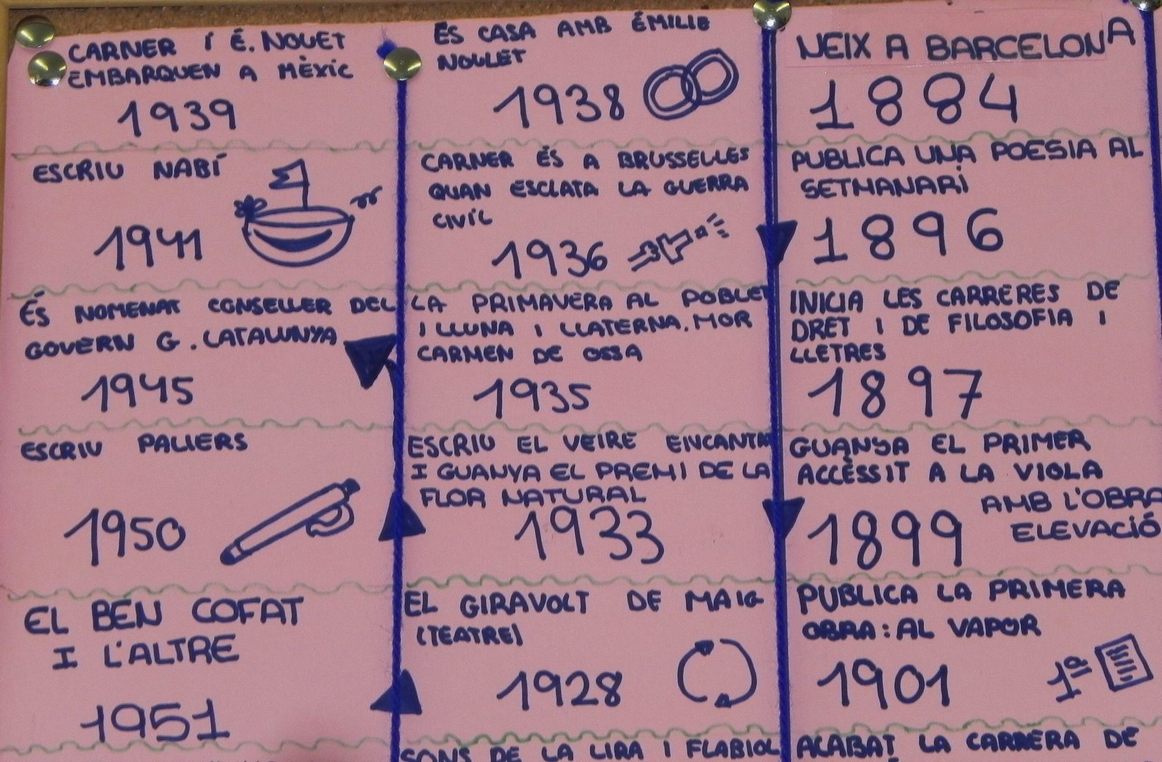 CARNER I É. NOUET
EMBARQUEN A MÈXIC
1939
ESCRIU NABÍ
1941
ÉS NOMENAT CONSELLER DEL
GOVERN G. CATALUNYA
1945
ESCRIU PALIERS
1950
EL BEN COFAT
I L'ALTRE
1951
ES CASA AMB ÉMILIE
NOULET
1938
CARNER ÉS A BRUSSELLES
QUAN ESCLATA LA GUERRA
CIVIL
1936
LA PRIMAVERA AL POBLET
I LLUNA I LLATERNA. MOR
CARMEN DE OSSA
1935
ESCRIU EL VEIRE ENCANTA
I GUANYA EL PREMI DE LA
FLOR NATURAL
1933
EL GIRAVOLT DE MAIG
(TEATRE)
1928
SONS DE LA LIRA I FLABIOL
NEIX A BARCELONA
1884
PUBLICA UNA POESIA AL
SETMANARI
1896
INICIA LES CARRERES DE
DRET I DE FILOSOFIA I
LLETRES
1897
GUANYA EL PRIMER
ACCÈSSIT A LA VIOLA
AMB L'OBRA
ELEVACIÓ
1899
PUBLICA LA PRIMERA
OBRA: AL VAPOR
1901
1ª
ACABAT LA CARRERA DE